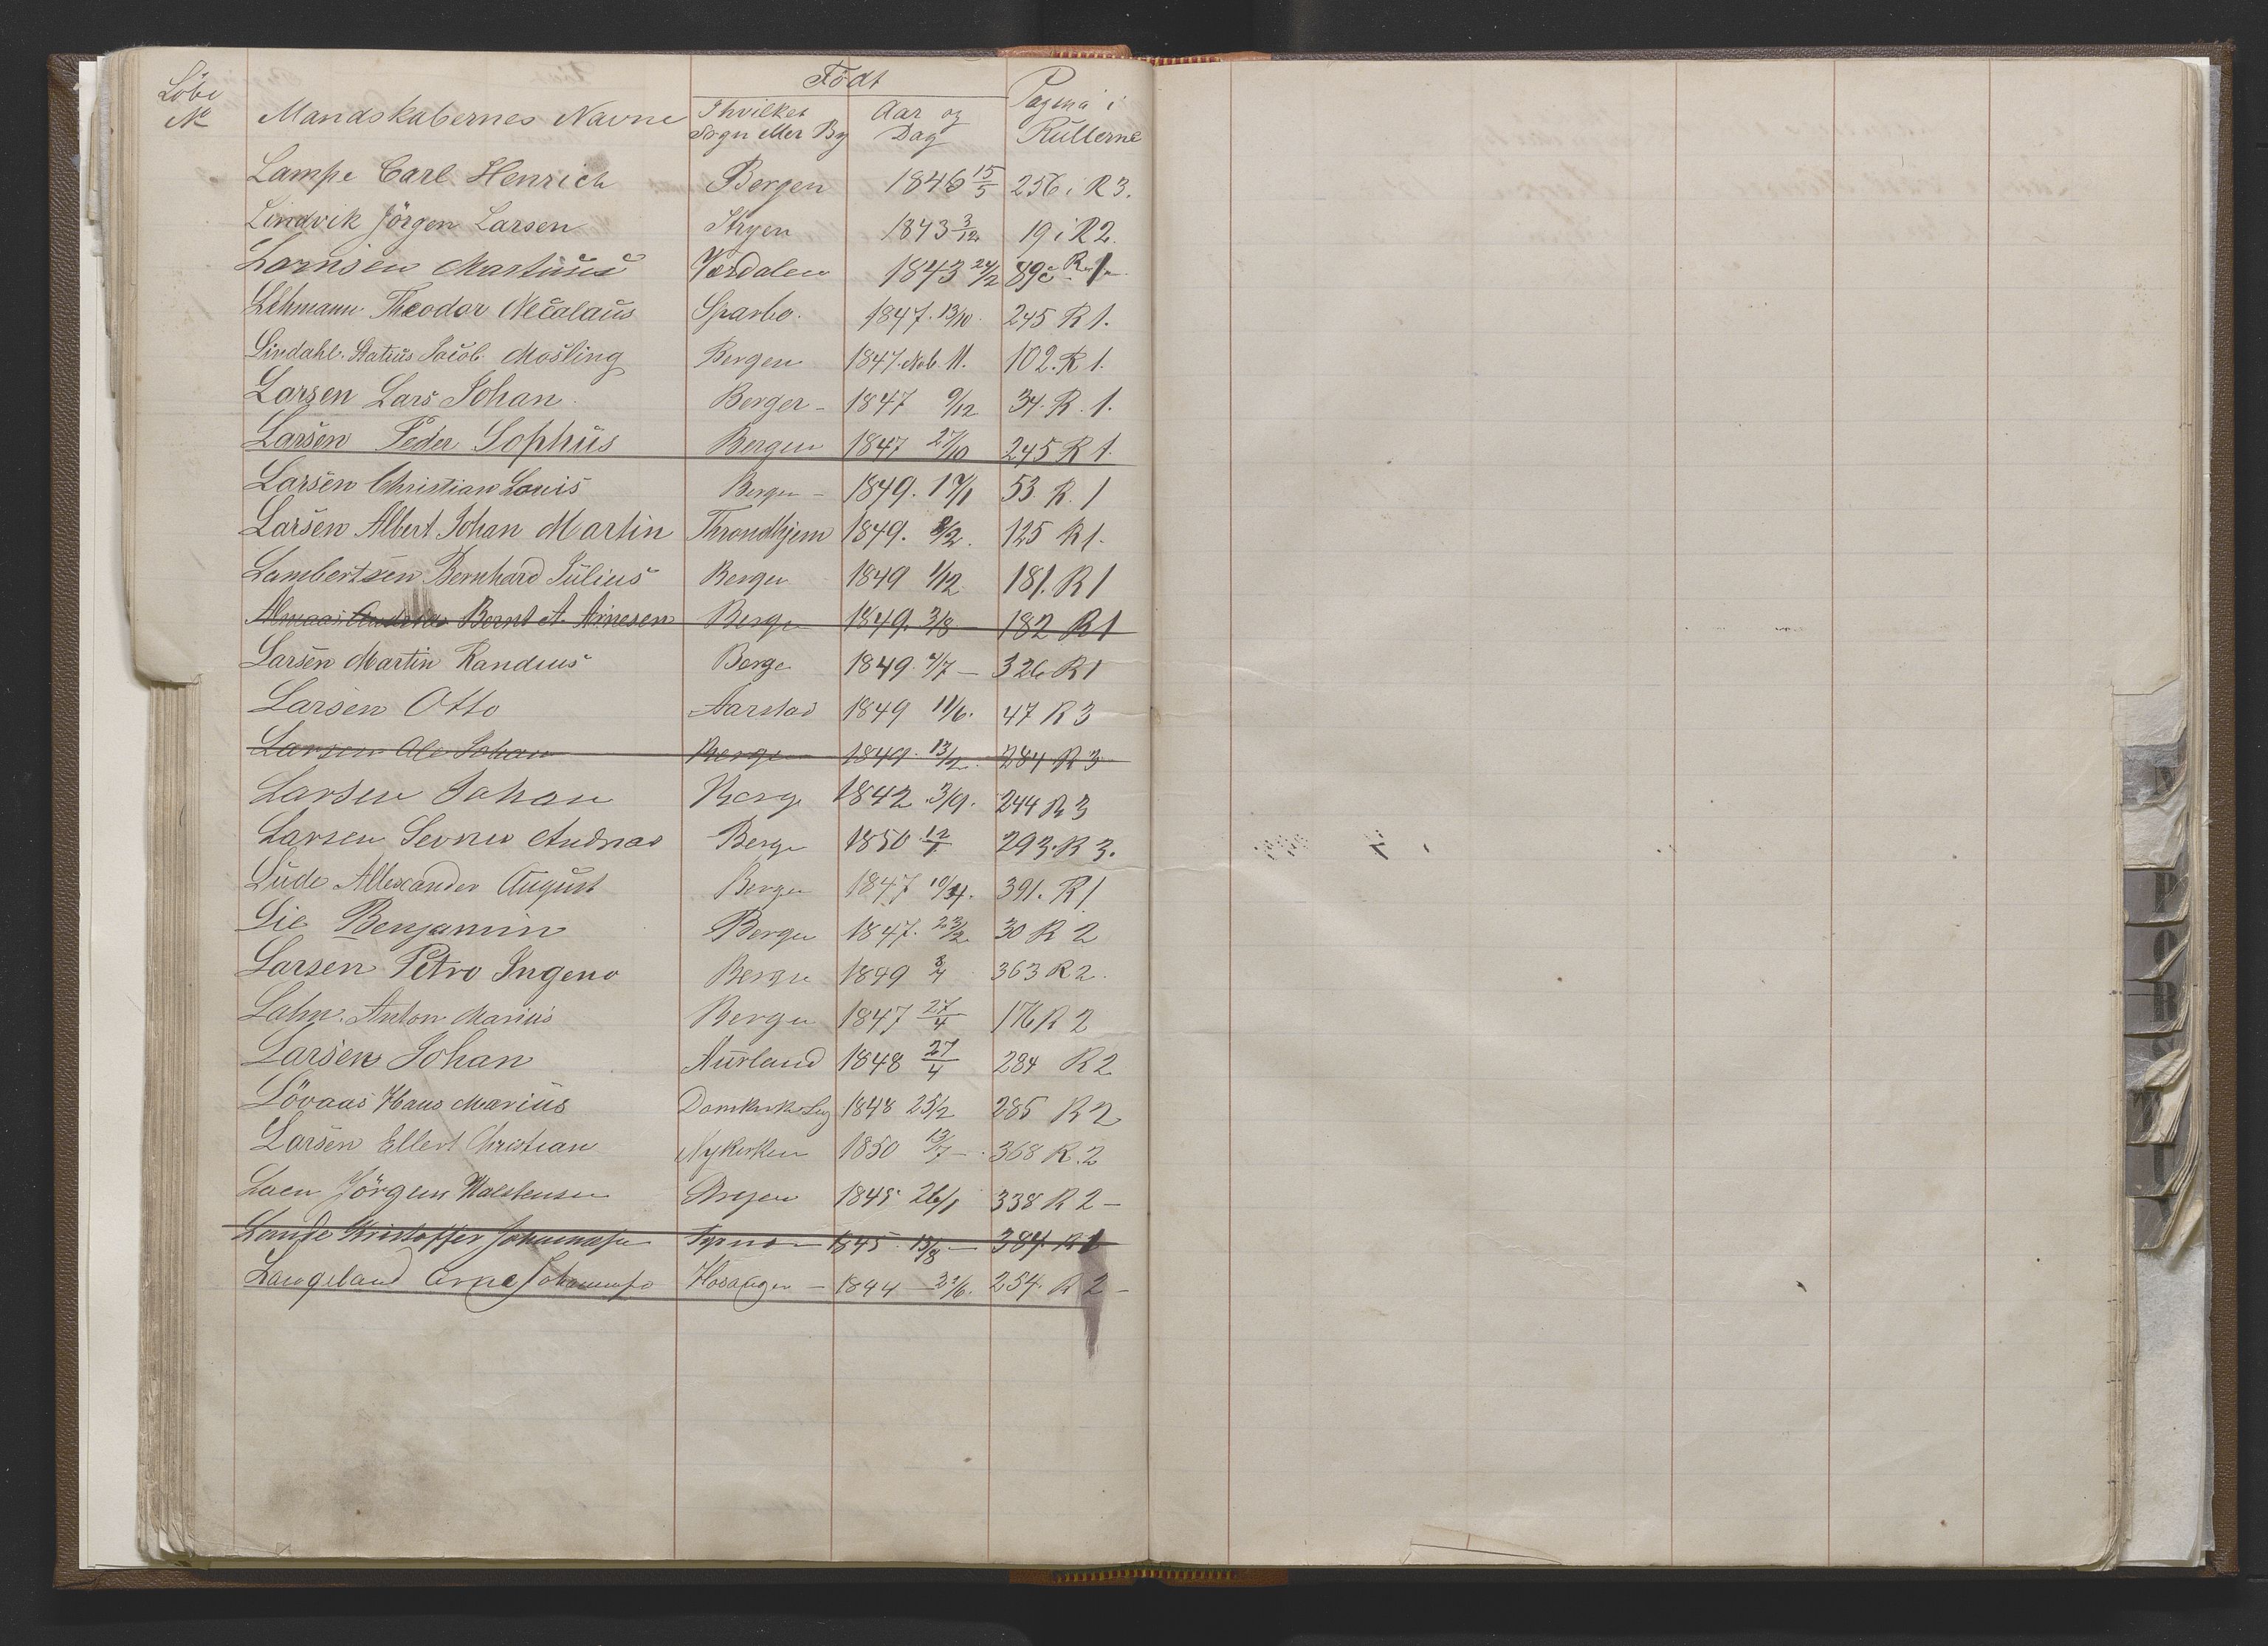 Löbe No Mandskabernes Navne Födt Ihvilket Sogn eller By Aar og Dag Pagina i Rullerne
Lampe Carl Henrich Bergen 1846 15/5 256 i R 3.
Lindvik Jörgen Larsen Stryen 1843 3/12 19 i R 2.
Martinus Værdalen 1843 24/2 89
Lehmann Theodor Necolaus Sparbo. 1847. 13/10. 245 R 1.
Lindahl. Statius Jacob Mosling Bergen 1847. 11. 102. R 1.
Larsen Lars Johan. Bergen 1847 9/12 34. R. 1.
Larsen Peder Sophus Bergen 1847 27/10 245 R 1.
Larsen Christian Louis Bergen 1849. 17/1 53 R. 1
Larsen Albert Johan Martin Throndhjem 1849. 125 R 1.
Lambertsen Bernhard Julius Bergen 1849 1/12 181. R 1
Almaas Bernt A. Arnesen Berge 1849. 3/8 182 R 1
Larsen Martin Randius Berge 1849. 326 R 1
Larsen Otto Aarstad 1849 11/6. 47 R 3
Larsen Ole Johan Bergen 1849. 13/2. 284 R 3
Larsen Johan Berge 1842. 3/9. 244 R 3
Larsen Andreas Berge 1850 12/1 293. R 3.
Lude Allexander August Bergen 1847 391. R 1
Lie Benjamin Bergen 1847. 23/2 30 R 2
Larsen Petro Ingeno Bergen 1849 8/4 363 R 2.
Lahn. Anton Marius Bergen 1847 27/4 176 R 2
Larsen Johan Aurland 1848 27/4 284 R 2
Lövaas Hans Marius 1848 25/2 285 R 2
Larsen Ellert Christian Nykirken 1850 13/7 368 R. 2
Loen Jörgen Stryen 1845 26/1 338 R 2 –
Lande Kristoffer 1845. 384 R 1
Langeland Arne Hosanger – 1844 254. R 2 –
N
P
O
R
S